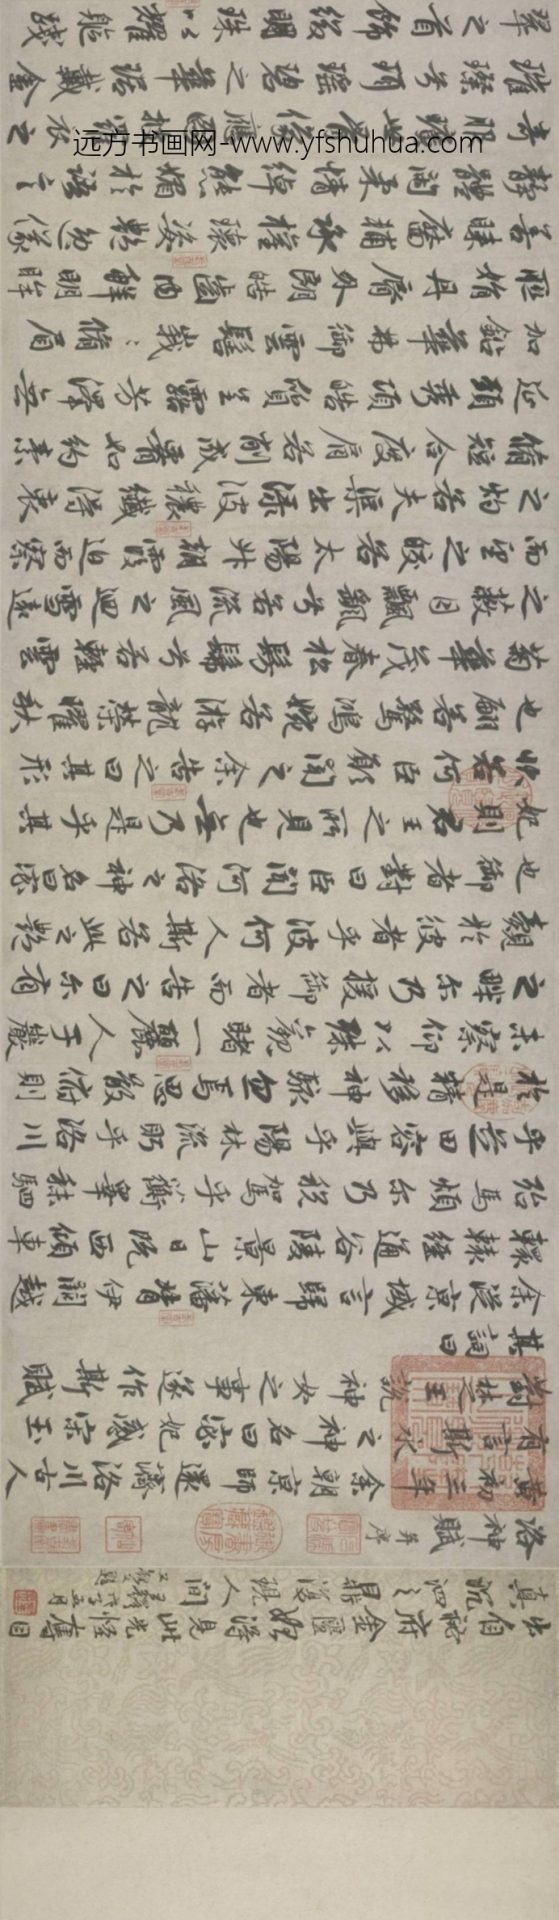 远方书画网-www.yfshuhua.com
出自祕府金匱始得見此光怪奪目
真沉泗之鼎復現人間
洛神賦 并序
黃初三年余朝京師還濟洛川古人
有言斯水之神名曰宓妃感宋玉
對楚王說神女之事遂作斯賦
其詞曰
余從京域言歸東藩背伊闕越
轘轅經通谷陵景山日既西傾車
殆馬煩尔乃稅駕乎蘅皋秣駟
乎芝田容與乎陽林流眄乎洛川
於是精移神駭忽焉思散俯則
未察仰以殊觀睹一麗人于巖
之畔尔乃援御者而告之曰尔有
覿於彼者乎彼何人斯若此之豔
也御者對曰臣聞河洛之神名曰宓
妃則君王之所見也無乃是乎其
狀若何臣願聞之余告之曰其形
也翩若驚鴻婉若游龍榮曜秋
菊華茂春松髣髴兮若輕雲
之蔽月飄颻兮若流風之迴雪遠
而望之皎若太陽升朝霞迫而察
之灼若夫渠出淥波穠纖得衷
脩短合度肩若削成腰如約素
延頸秀項皓質呈露芳澤無
加鉛華弗御雲髻峩峩脩眉
聯娟丹脣外朗皓齒內鮮明眸
善睞靨輔承權瓌姿豔逸儀
靜體閑柔情綽態媚於語言
奇服曠世骨像應圖披羅衣之
璀璨兮珥瑤碧之華琚戴金
翠之首飾綴明珠以耀軀踐